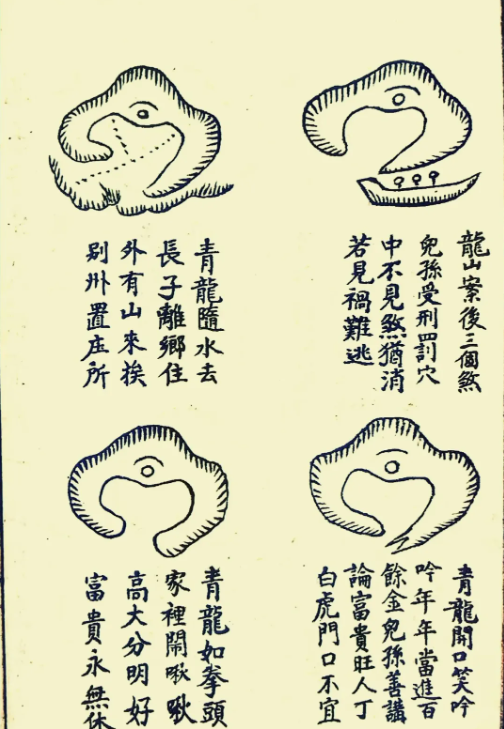 龍山案後三個煞
兒孫受刑罰穴
中不見煞猶消
若見禍難逃
青龍隨水去
長子離鄉住
外有山來挨
别州置庄所
青龍開口笑吟
吟年年當進百
餘金兒孫善講
論富貴旺人丁
白虎門口不宜
青龍如拳頭
家裡鬧啾啾
高大分明好
富貴永無休